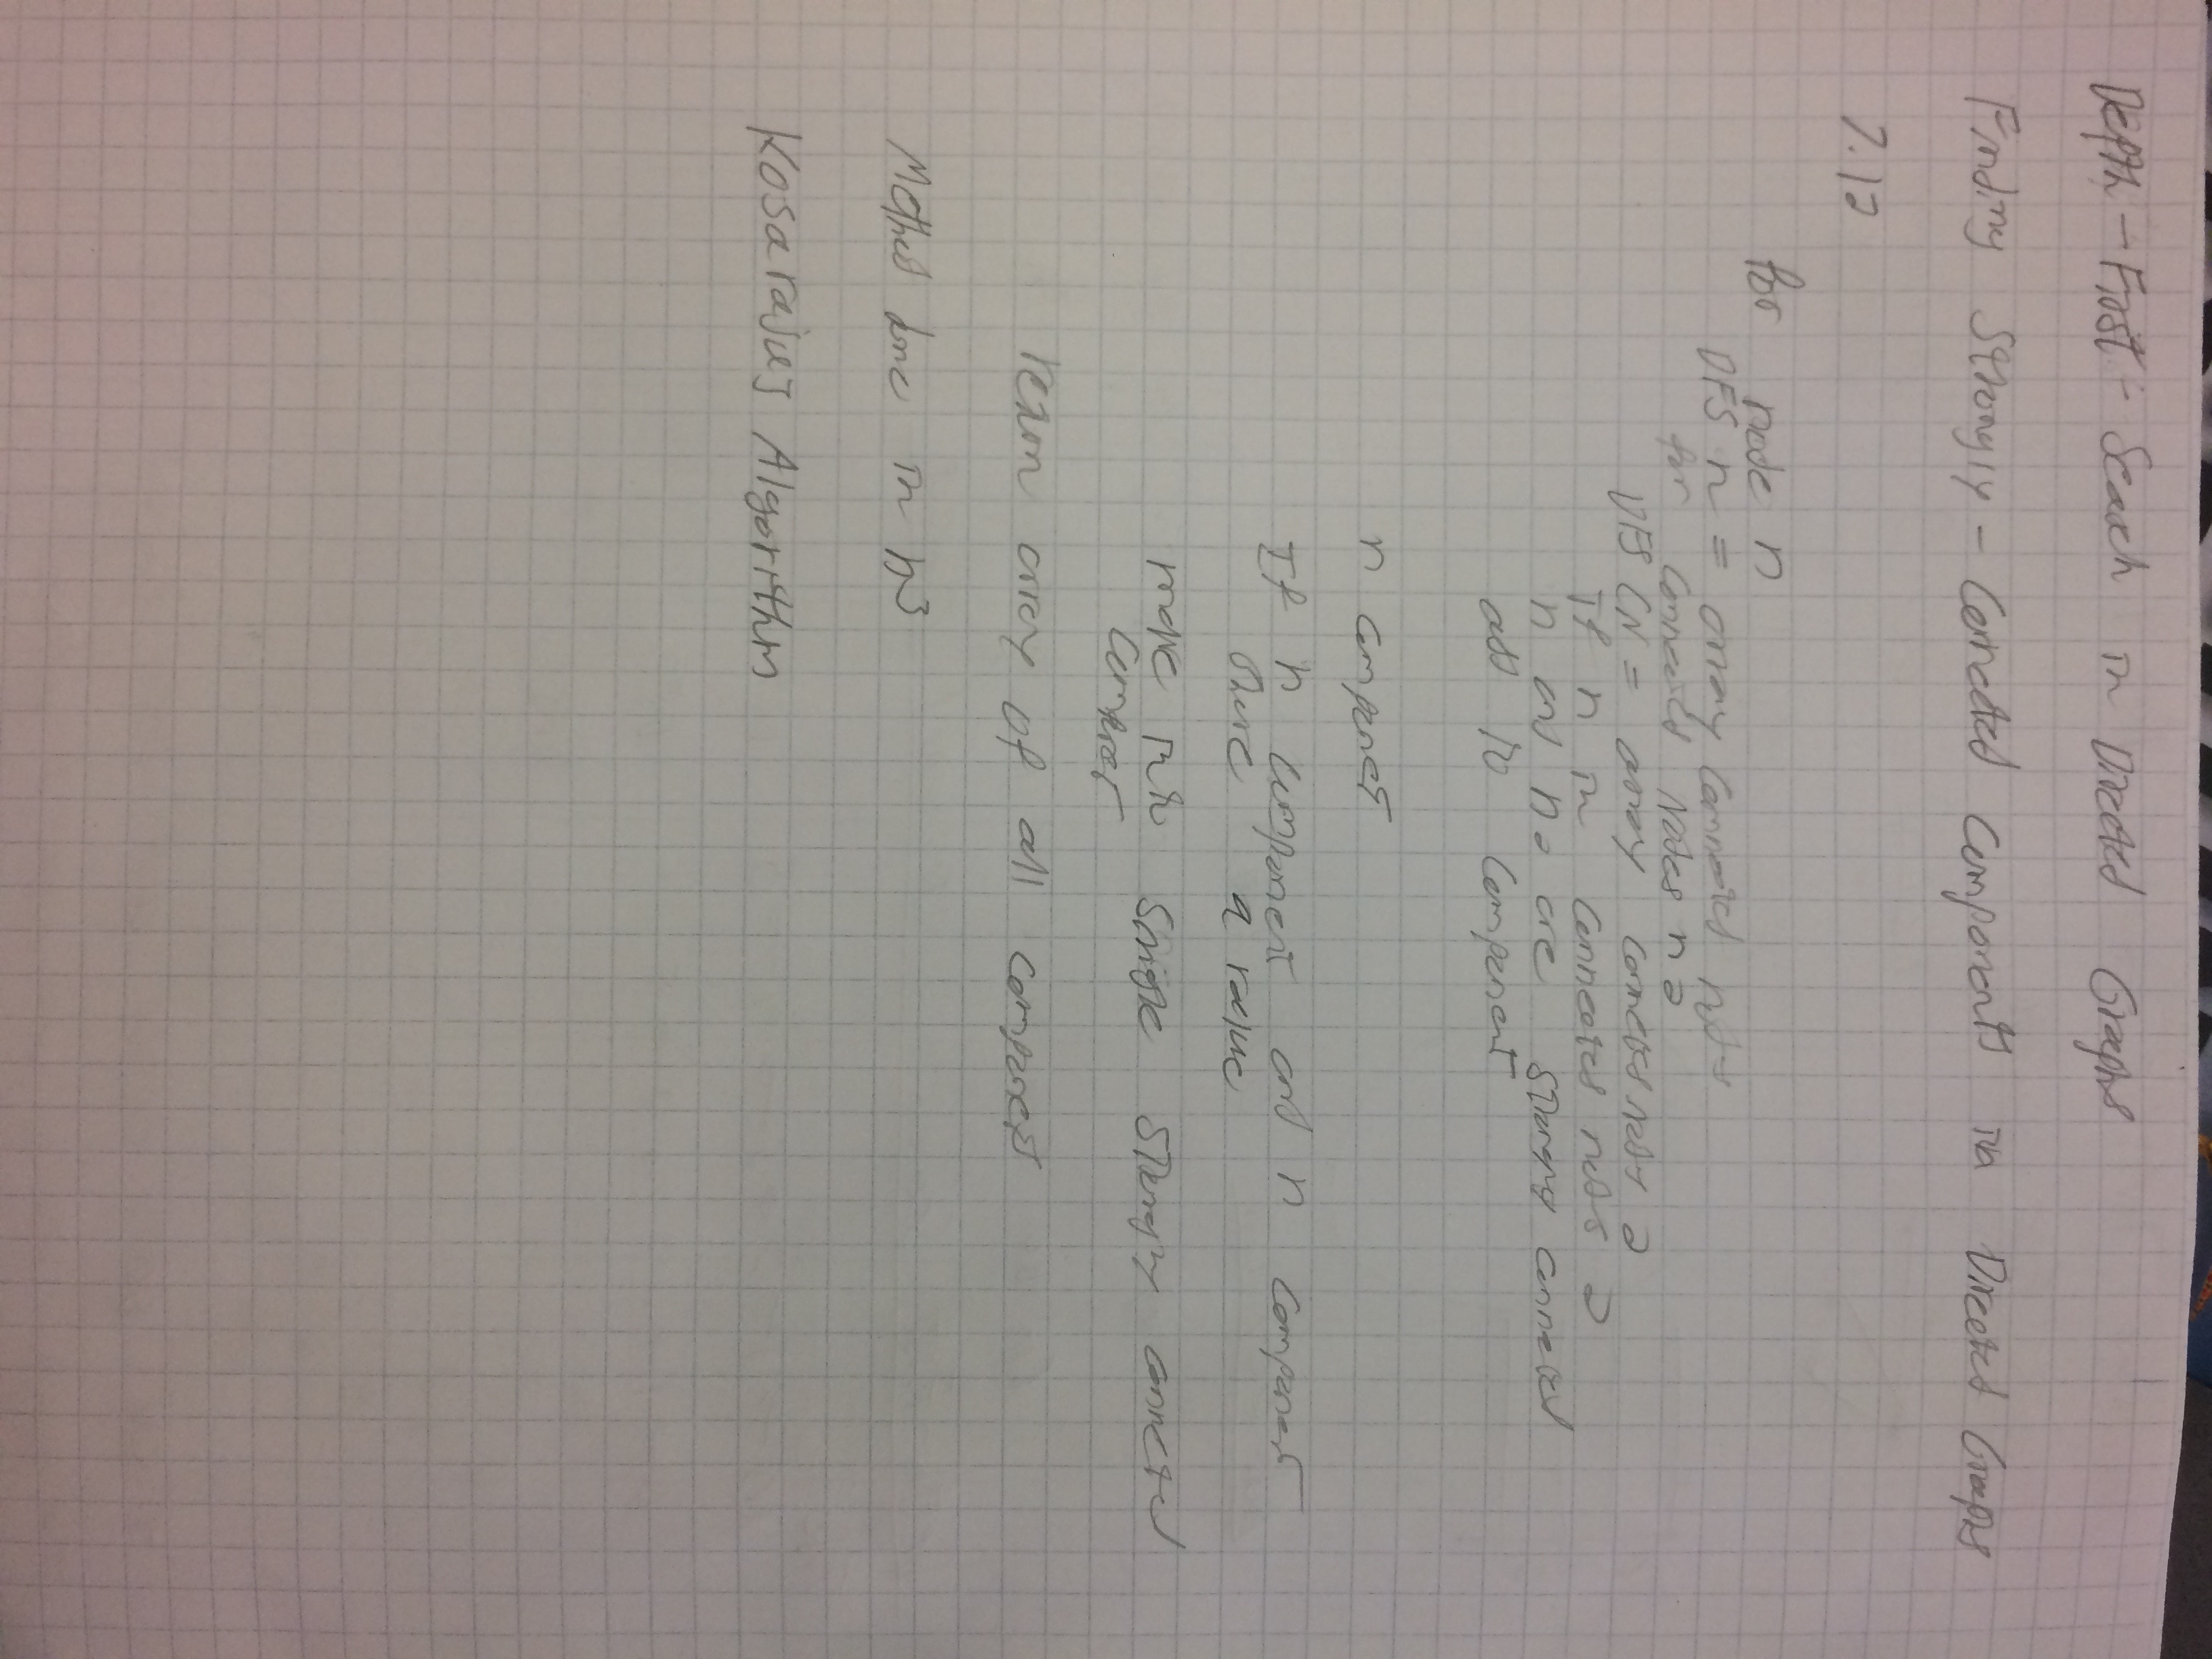 Depth-First-Search in Directed Graphs
Finding Strongly-Conected Components in Directed Graphs
7.12
for node n
DFS n = array connected nodes
for connected nodes n2
DFS CN = array connected nodes 2
If n in connected nodes 2
n and n2 are strongly connected
add to component
n component
If n component and n component
share a value
make into single strongly connected
component
return array of all components
Method done in n3
Kosarajus Algorithm